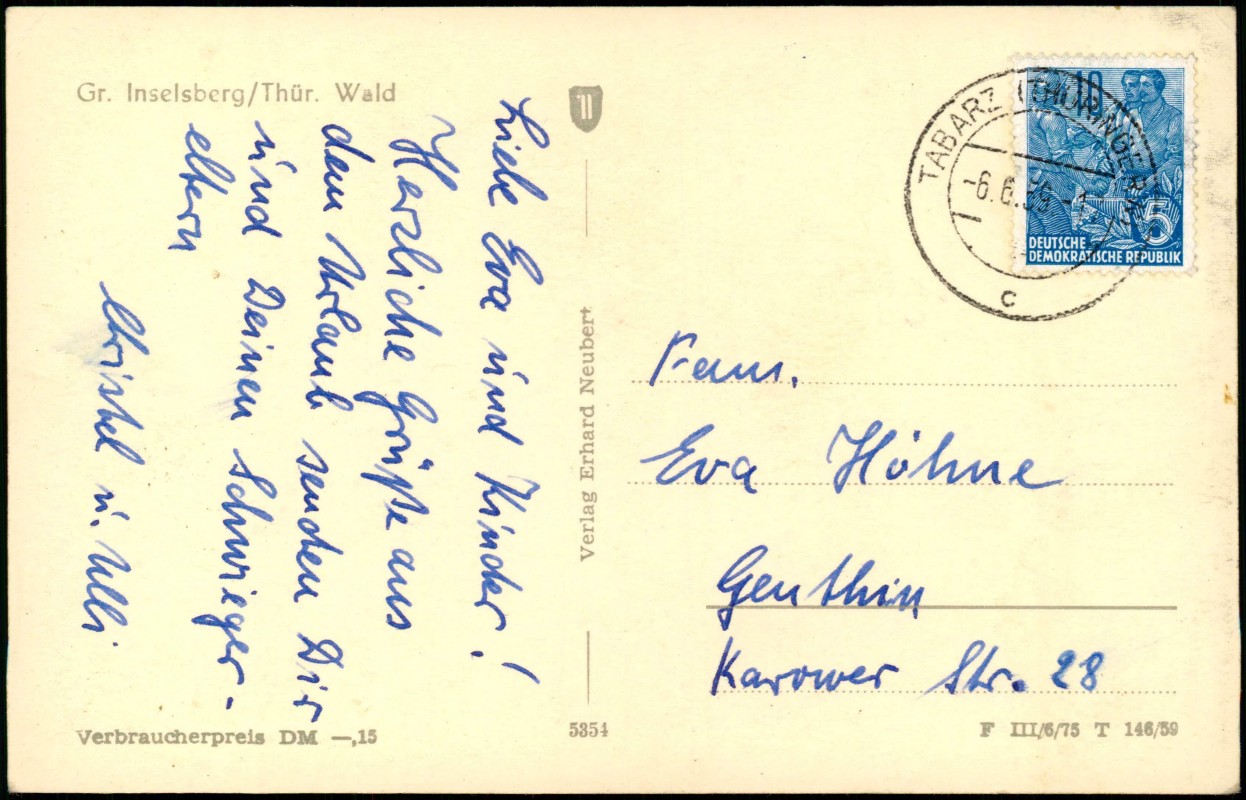 Gr. Inselsberg/Thür. Wald
Liebe Eva und Kinder!
Herzliche Grüße aus
dem Urlaub senden Dir
und Deinen Schwieger-
eltern
Christel u. Ulli
Verbraucherpreis DM —,15
Verlag Erhard Neubert
5354
TABARZ (THÜRINGER
-6.6.
C
10
5
DEUTSCHE
DEMOKRATISCHE REPUBLIK
Fam.
Eva Höhne
Genthin
Karower Str. 28
F III/6/75 T 146/59